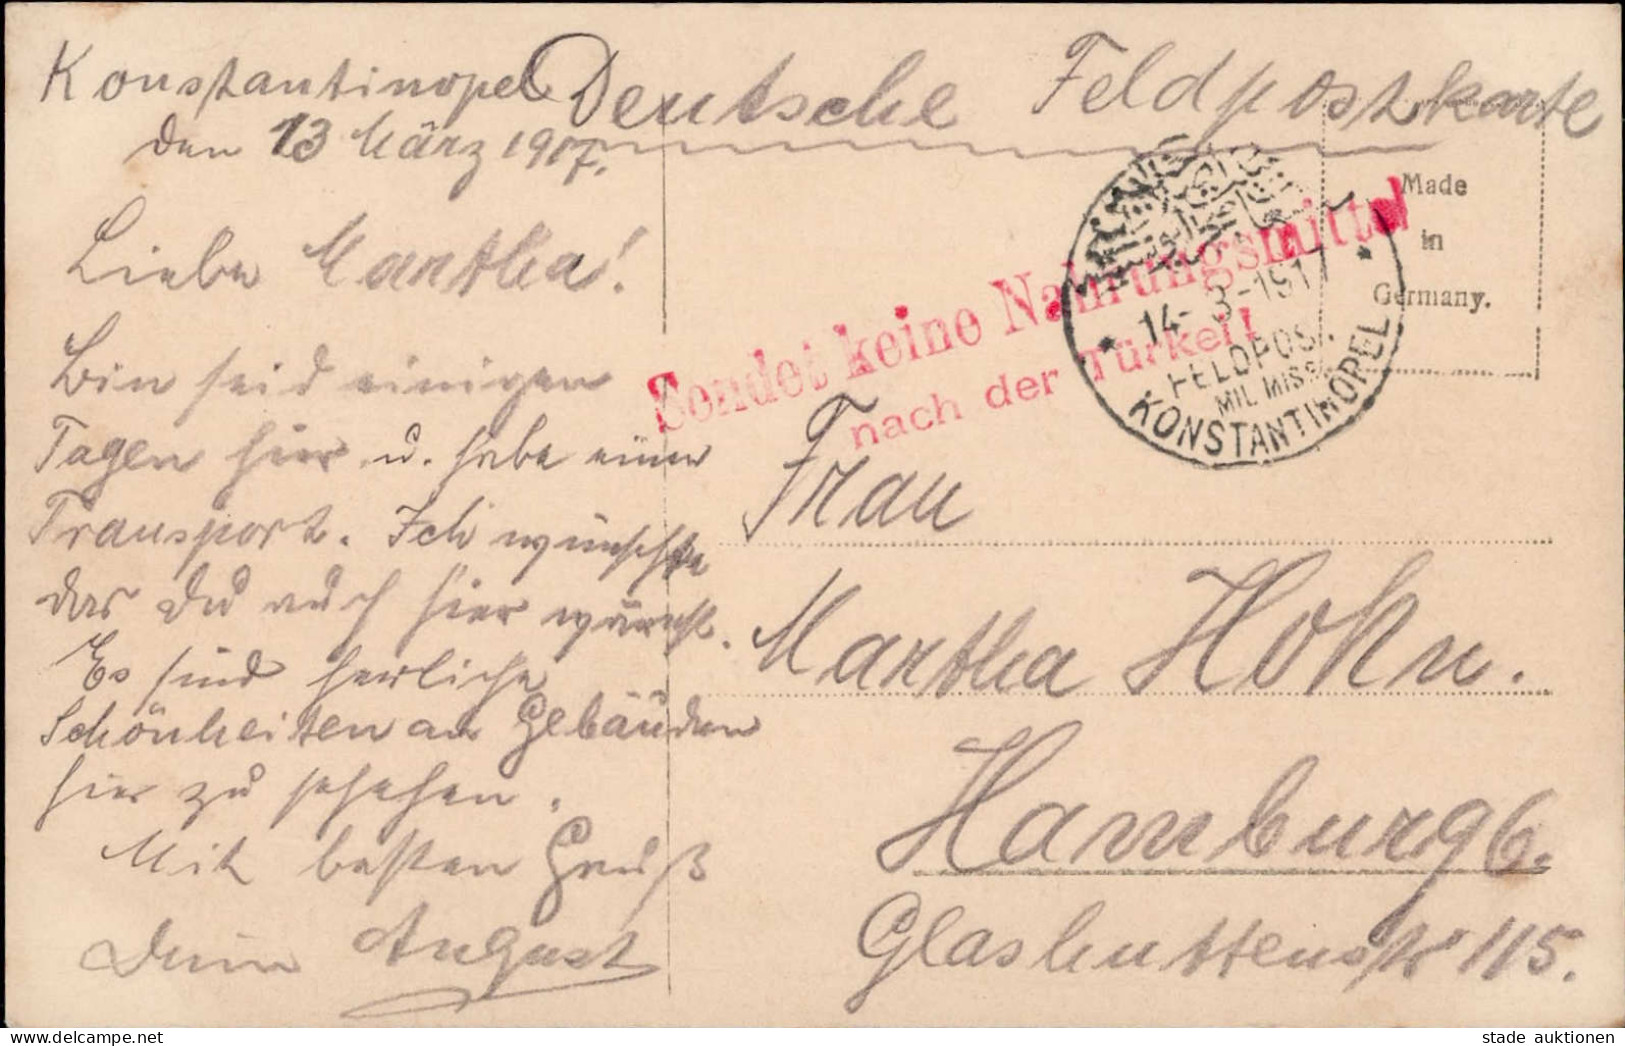 Konstantinopel
den 13 März 1917.
Deutsche Feldpostkarte
Liebe Martha!
Bin seid einigen
Tagen hier u. habe einen
Transport. Ich wünschte
das Du auch hier wärest.
Es sind herliche
Schönheiten an Gebäuden
hier zu sehehen.
Mit besten Gruß
Dein August
Sendet keine Nahrungsmittel
nach der Türkei!
14-3-1917
FELDPOST
MIL MISS
KONSTANTINOPEL
Made
in
Germany.
Frau
Martha Hohn.
Hamburg 6.
Glashüttenstr 115.
stade auktionen